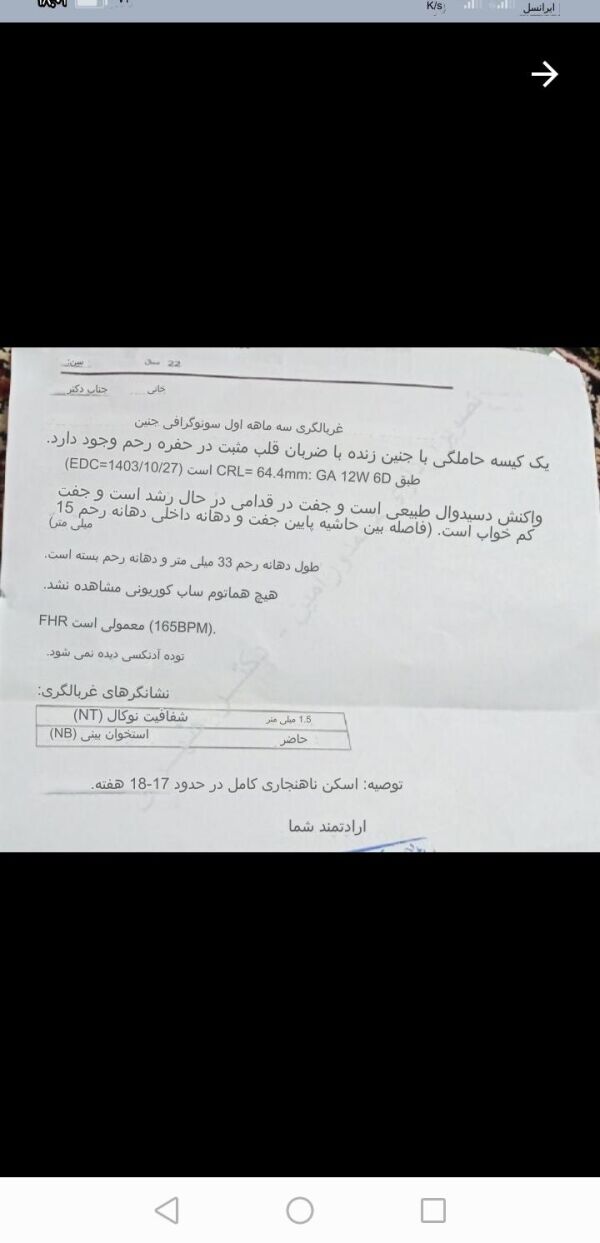 K/s
ایرانسل
سن: 22 سال
جناب دکتر خانی
غربالگری سه ماهه اول سونوگرافی جنین
یک کیسه حاملگی با جنین زنده با ضربان قلب مثبت در حفره رحم وجود دارد.
طبق CRL= 64.4mm: GA 12W 6D است (EDC=1403/10/27)
واکنش دسیدوال طبیعی است و جفت در قدامی در حال رشد است و جفت
کم خواب است. (فاصله بین حاشیه پایین جفت و دهانه داخلی دهانه رحم 15
میلی متر)
طول دهانه رحم 33 میلی متر و دهانه رحم بسته است.
هیچ هماتوم ساب کوریونی مشاهده نشد.
FHR معمولی است (165BPM).
توده آدنکسی دیده نمی شود.
نشانگرهای غربالگری:
شفافیت نوکال (NT) 1.5 میلی متر
استخوان بینی (NB) حاضر
توصیه: اسکن ناهنجاری کامل در حدود 17-18 هفته.
ارادتمند شما